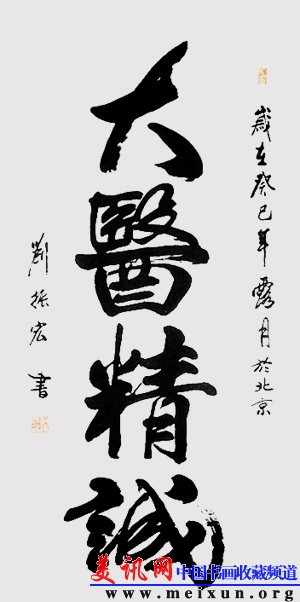 大醫精誠
歲在癸巳年露月於北京
劉振宏書
美讯网 中国书画收藏频道
www.meixun.org